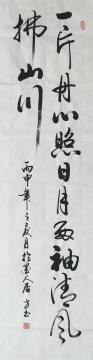 一片丹心照日月两袖清风
拂山川
丙申年之夏月於墨人居